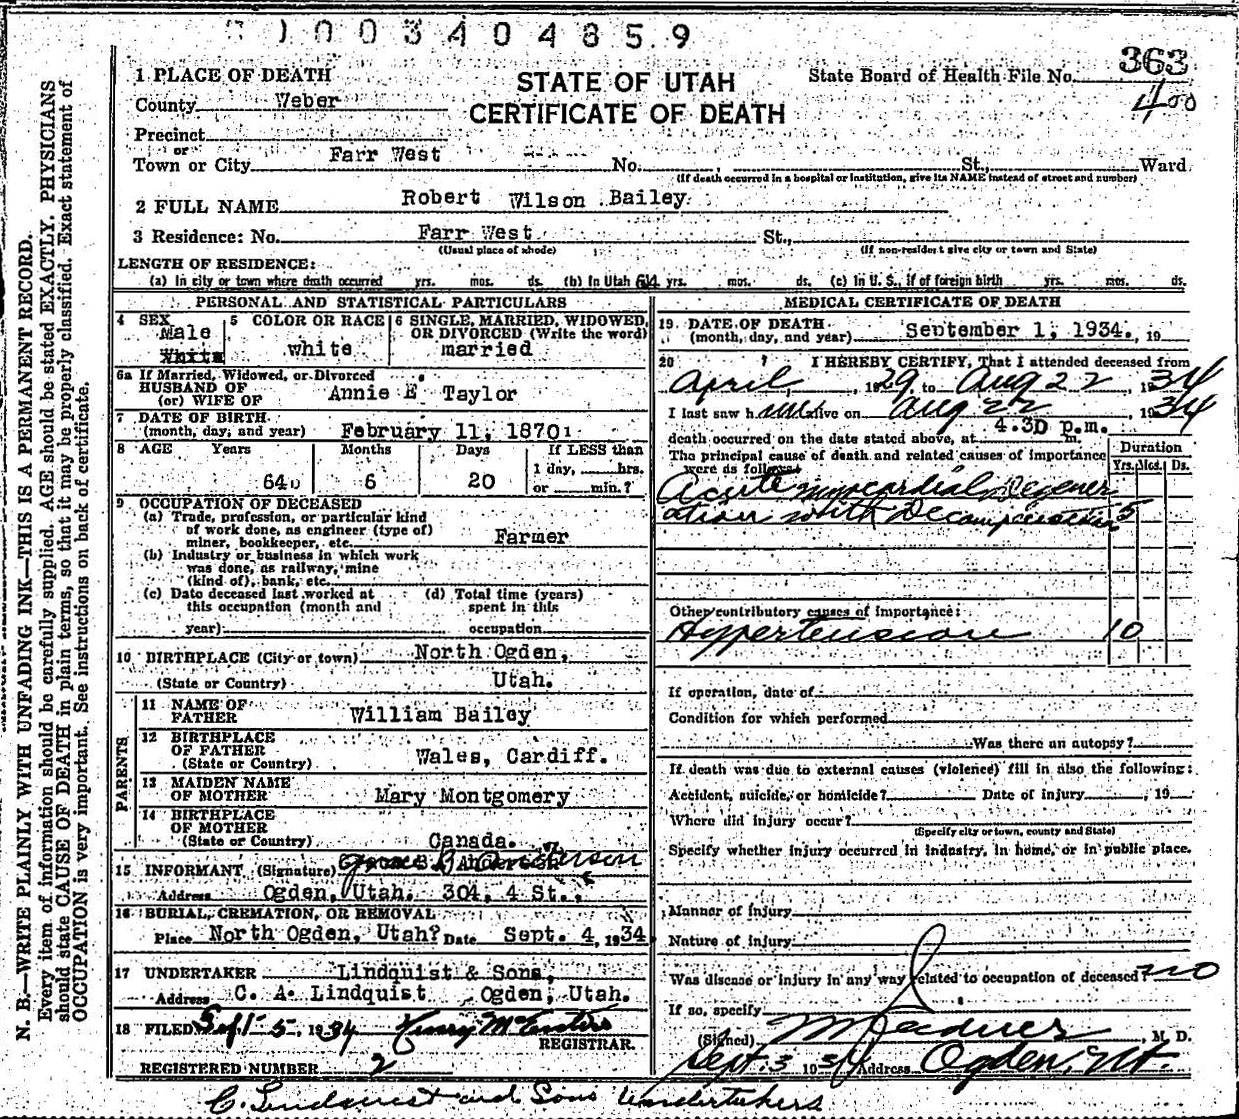 0 0 3 4 0 4 8 5 9
1 PLACE OF DEATH
County Weber
Precinct
or
Town or City Farr West No. St., Ward
(If death occurred in a hospital or institution, give its NAME instead of street and number)
STATE OF UTAH
CERTIFICATE OF DEATH
State Board of Health File No. 363
400
2 FULL NAME Robert Wilson Bailey
3 Residence: No. Farr West St.,
(Usual place of abode) (If non-resident give city or town and State)
LENGTH OF RESIDENCE:
(a) In city or town where death occurred yrs. mos. ds. (b) In Utah 64 yrs. mos. ds. (c) In U. S., if of foreign birth yrs. mos. ds.
PERSONAL AND STATISTICAL PARTICULARS
4 SEX Male
White
5 COLOR OR RACE white
6 SINGLE, MARRIED, WIDOWED, OR DIVORCED (Write the word) married
6a If Married, Widowed, or Divorced
HUSBAND OF
(or) WIFE OF Annie E Taylor
7 DATE OF BIRTH
(month, day, and year) February 11, 1870
8 AGE Years Months Days If LESS than
1 day, hrs.
64 6 20 or min.?
9 OCCUPATION OF DECEASED
(a) Trade, profession, or particular kind
of work done, as engineer (type of)
miner, bookkeeper, etc. Farmer
(b) Industry or business in which work
was done, as railway, mine
(kind of), bank, etc.
(c) Date deceased last worked at (d) Total time (years)
this occupation (month and spent in this
year) occupation
10 BIRTHPLACE (City or town) North Ogden,
(State or Country) Utah.
PARENTS
11 NAME OF
FATHER William Bailey
12 BIRTHPLACE
OF FATHER
(State or Country) Wales, Cardiff.
13 MAIDEN NAME
OF MOTHER Mary Montgomery
14 BIRTHPLACE
OF MOTHER
(State or Country) Canada.
15 INFORMANT (Signature) Anderson
Address Ogden, Utah. 304, 4 St.,
16 BURIAL, CREMATION, OR REMOVAL
Place North Ogden, Utah? Date Sept. 4, 1934
17 UNDERTAKER Lindquist & Sons,
Address C. A. Lindquist Ogden, Utah.
18 FILED Sept 5, 1934 Henry
REGISTRAR.
REGISTERED NUMBER 2
MEDICAL CERTIFICATE OF DEATH
19 DATE OF DEATH
(month, day, and year) September 1, 1934., 19
20 I HEREBY CERTIFY, That I attended deceased from
April, 1929 to Aug 22, 1934
I last saw him alive on Aug 22, 1934
death occurred on the date stated above, at 4.30 p.m. m.
The principal cause of death and related causes of importance
were as follows
Duration
Yrs. Mos. Ds.
Acute myocardial Degener
ation with Decompensation 5
Other contributory causes of importance:
Hypertension 10
If operation, date of
Condition for which performed
Was there an autopsy?
If death was due to external causes (violence) fill in also the following:
Accident, suicide, or homicide? Date of injury, 19
Where did injury occur?
(Specify city or town, county and State)
Specify whether injury occurred in industry, in home, or in public place.
Manner of injury
Nature of injury
Was disease or injury in any way related to occupation of deceased? no
If so, specify
(Signed) , M. D.
Sept. 3 1934 Address Ogden, Ut.
C. Lindquist and Sons Undertakers
N. B.—WRITE PLAINLY WITH UNFADING INK—THIS IS A PERMANENT RECORD.
Every item of information should be carefully supplied. AGE should be stated EXACTLY. PHYSICIANS
should state CAUSE OF DEATH in plain terms, so that it may be properly classified. Exact statement of
OCCUPATION is very important. See instructions on back of certificate.